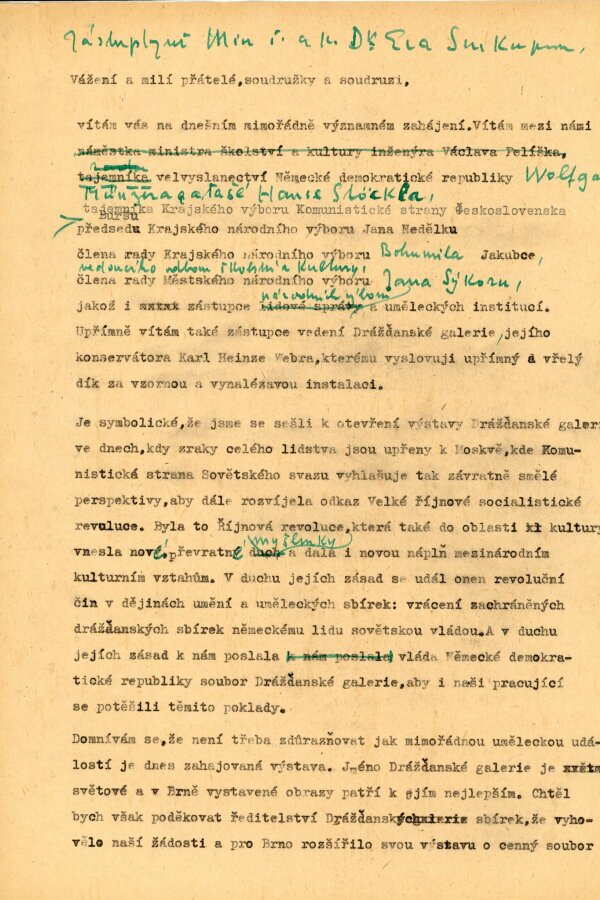 zástupkyni Min š. a k. Dr Eva
Vážení a milí přátelé,soudružky a soudruzi,
vítám vás na dnešním mimořádně významném zahájení.Vítám mezi námi
náměstka ministra školství a kultury inženýra Václava Pelíška,
tajemníka velvyslanectví Německé demokratické republiky Wolfga
a Hanse Stöckla,
tajemníka Krajského výboru Komunistické strany Československa
Buršu
předsedu Krajského národního výboru Jana Nedělku
člena rady Krajského národního výboru Bohumila Jakubce,
vedoucího odboru školství a kultury,
člena rady Městského národního výboru Jana Sýkoru,
národních výborů
jakož i xxxxx zástupce lidové správy a uměleckých institucí.
Upřímně vítám také zástupce vedení Drážďanské galerie,jejího
konservátora Karl Heinze Webra,kterému vyslovuji upřímný a vřelý
dík za vzornou a vynalézavou instalaci.
Je symbolické,že jsme se sešli k otevření výstavy Drážďanské galer
ve dnech,kdy zraky celého lidstva jsou upřeny k Moskvě,kde Komu-
nistická strana Sovětského svazu vyhlašuje tak závratně smělé
perspektivy,aby dále rozvíjela odkaz Velké říjnové socialistické
revoluce. Byla to Říjnová revoluce,která také do oblasti xi kultury
myšlenky
vnesla nové,převratné duch a dala i novou náplň mezinárodním
kulturním vztahům. V duchu jejích zásad se udál onen revoluční
čin v dějinách umění a uměleckých sbírek: vrácení zachráněných
drážďanských sbírek německému lidu sovětskou vládou.A v duchu
jejích zásad k nám poslala k nám poslala vláda Německé demokra-
tické republiky soubor Drážďanské galerie,aby i naši pracující
se potěšili těmito poklady.
Domnívám se,že není třeba zdůrazňovat jak mimořádnou uměleckou udá-
lostí je dnes zahajovaná výstava. Jméno Drážďanské galerie je
světové a v Brně vystavené obrazy patří k jejím nejlepším. Chtěl
bych však poděkovat ředitelství Drážďanských sbírek,že vyho-
vělo naší žádosti a pro Brno rozšířilo svou výstavu o cenný soubor